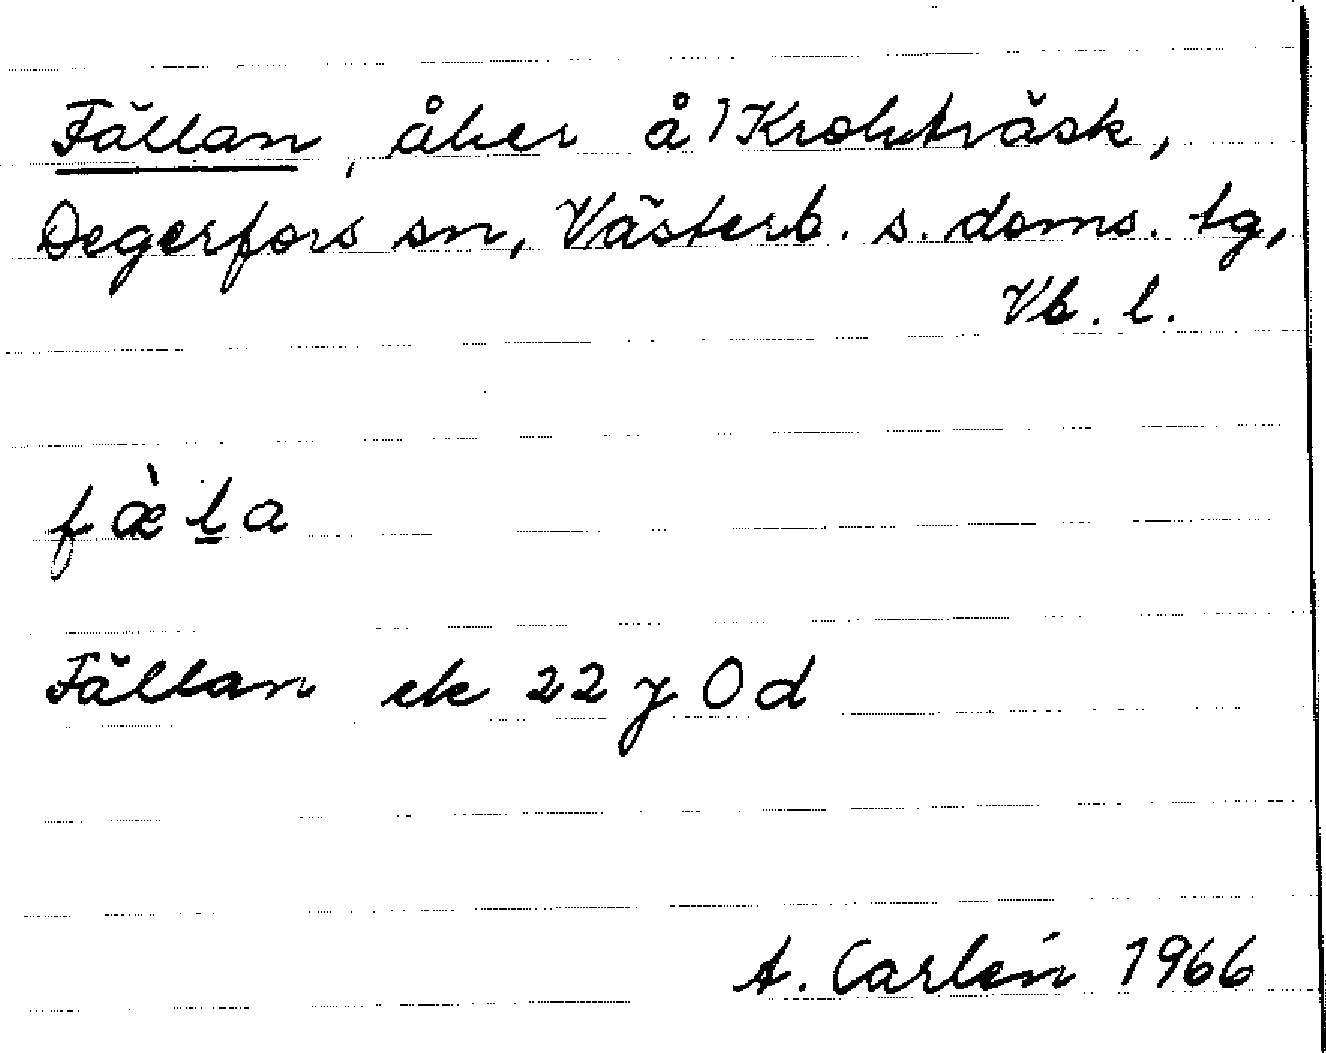 Fällan, åker å 1 Krokträsk,
Degerfors sn, Västerb. s. doms. tg,
Vb. l.
fæ̀l̠a
Fällan ek 22 y 0 d
A. Carlén 1966